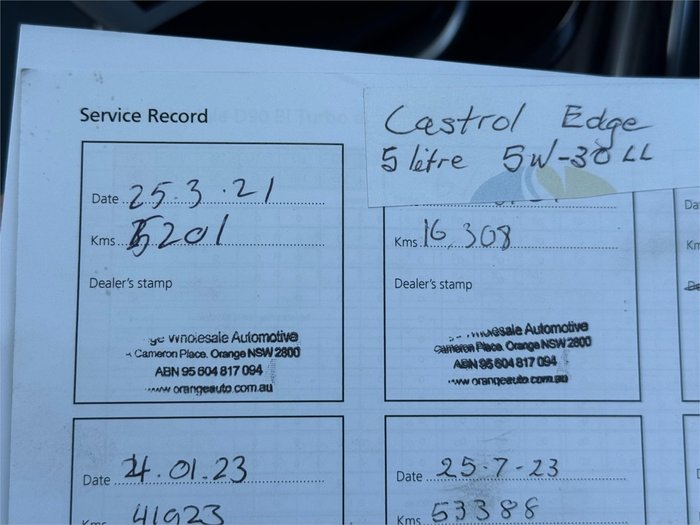 Service Record
Castrol Edge
5 litre 5W-30 LL
Date 25.3.21
Kms 5201
Dealer's stamp
Wholesale Automotive
Cameron Place. Orange NSW 2800
ABN 95 604 817 094
www.orangeauto.com.au
Kms 16,308
Dealer's stamp
Automotive
Cameron Place. Orange NSW 2800
ABN 95 604 817 094
www.orangeauto.com.au
Date 24.01.23
Kms 41923
Date 25.7.23
Kms 53388